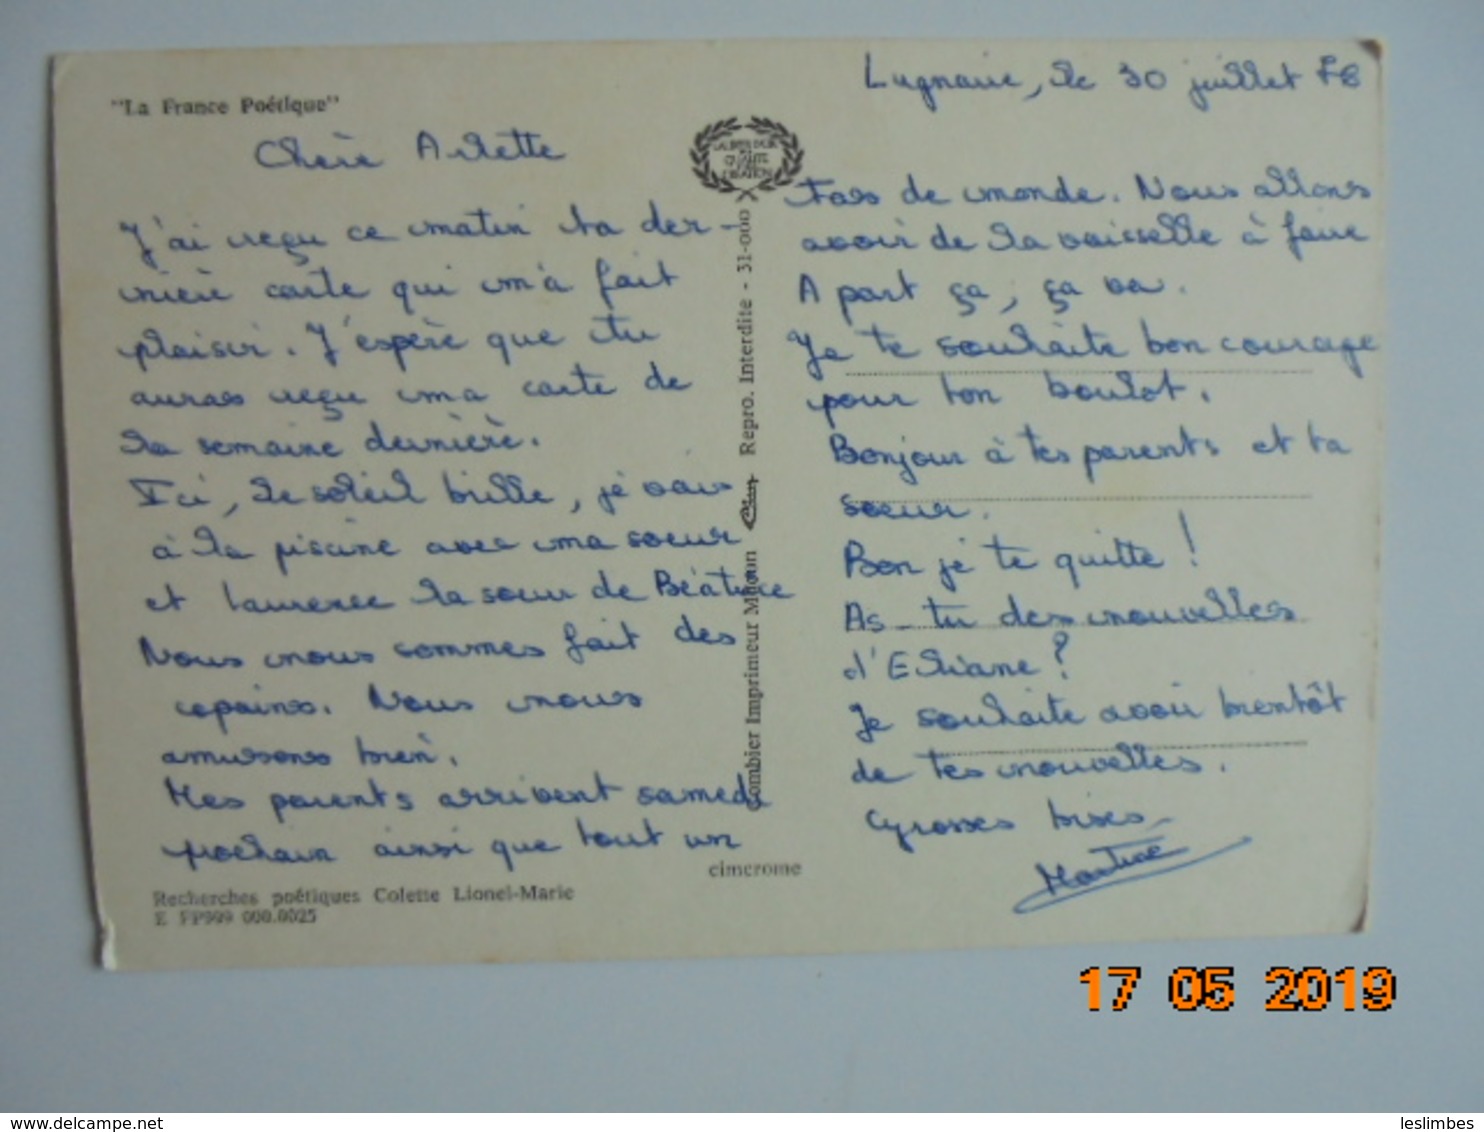 "La France Poétique"
Chère Arlette
J'ai reçu ce matin ta der-
nière carte qui m'a fait
plaisir. J'espère que tu
auras reçu ma carte de
la semaine dernière.
Ici, le soleil brille, je vais
à la piscine avec ma soeur
et Laurence la soeur de Béatrice
Nous nous sommes fait des
copains. Nous nous
amusons bien.
Mes parents arrivent samedi
prochain ainsi que tout un
Recherches poétiques Colette Lionel-Marie
E FP909 000.0025
cimcrome
Combier Imprimeur Macon Repro. Interdite - 31-000
le 30 juillet 78
de monde. Nous allons
avoir de la vaisselle à faire
A part ça, ça va.
Je te souhaite bon courage
pour ton boulot.
Bonjour à tes parents et ta
soeur.
Bon je te quitte !
As-tu des nouvelles
d'Eliane ?
Je souhaite avoir bientôt
de tes nouvelles.
Grosses bises
Martine
17 05 2019
www.delcampe.net
leslimbes